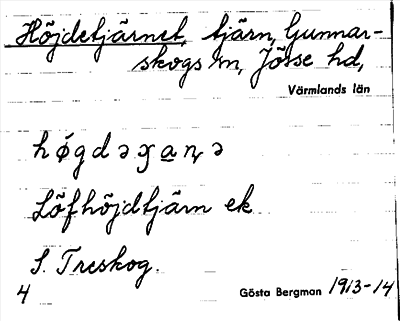 Höjdetjärnet, tjärn, Gunnar-
skogs sn, Jösse hd,
Värmlands län
Löfhöjdtjärn ek
S. Treskog.
4
Gösta Bergman 1913-14